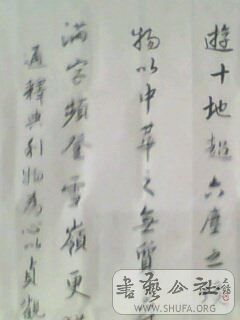 遊十地超六塵之
物以中華之無質
滿字頻登雪嶺更
通釋典利物為心以貞觀
書藝公社
WWW.SHUFA.ORG